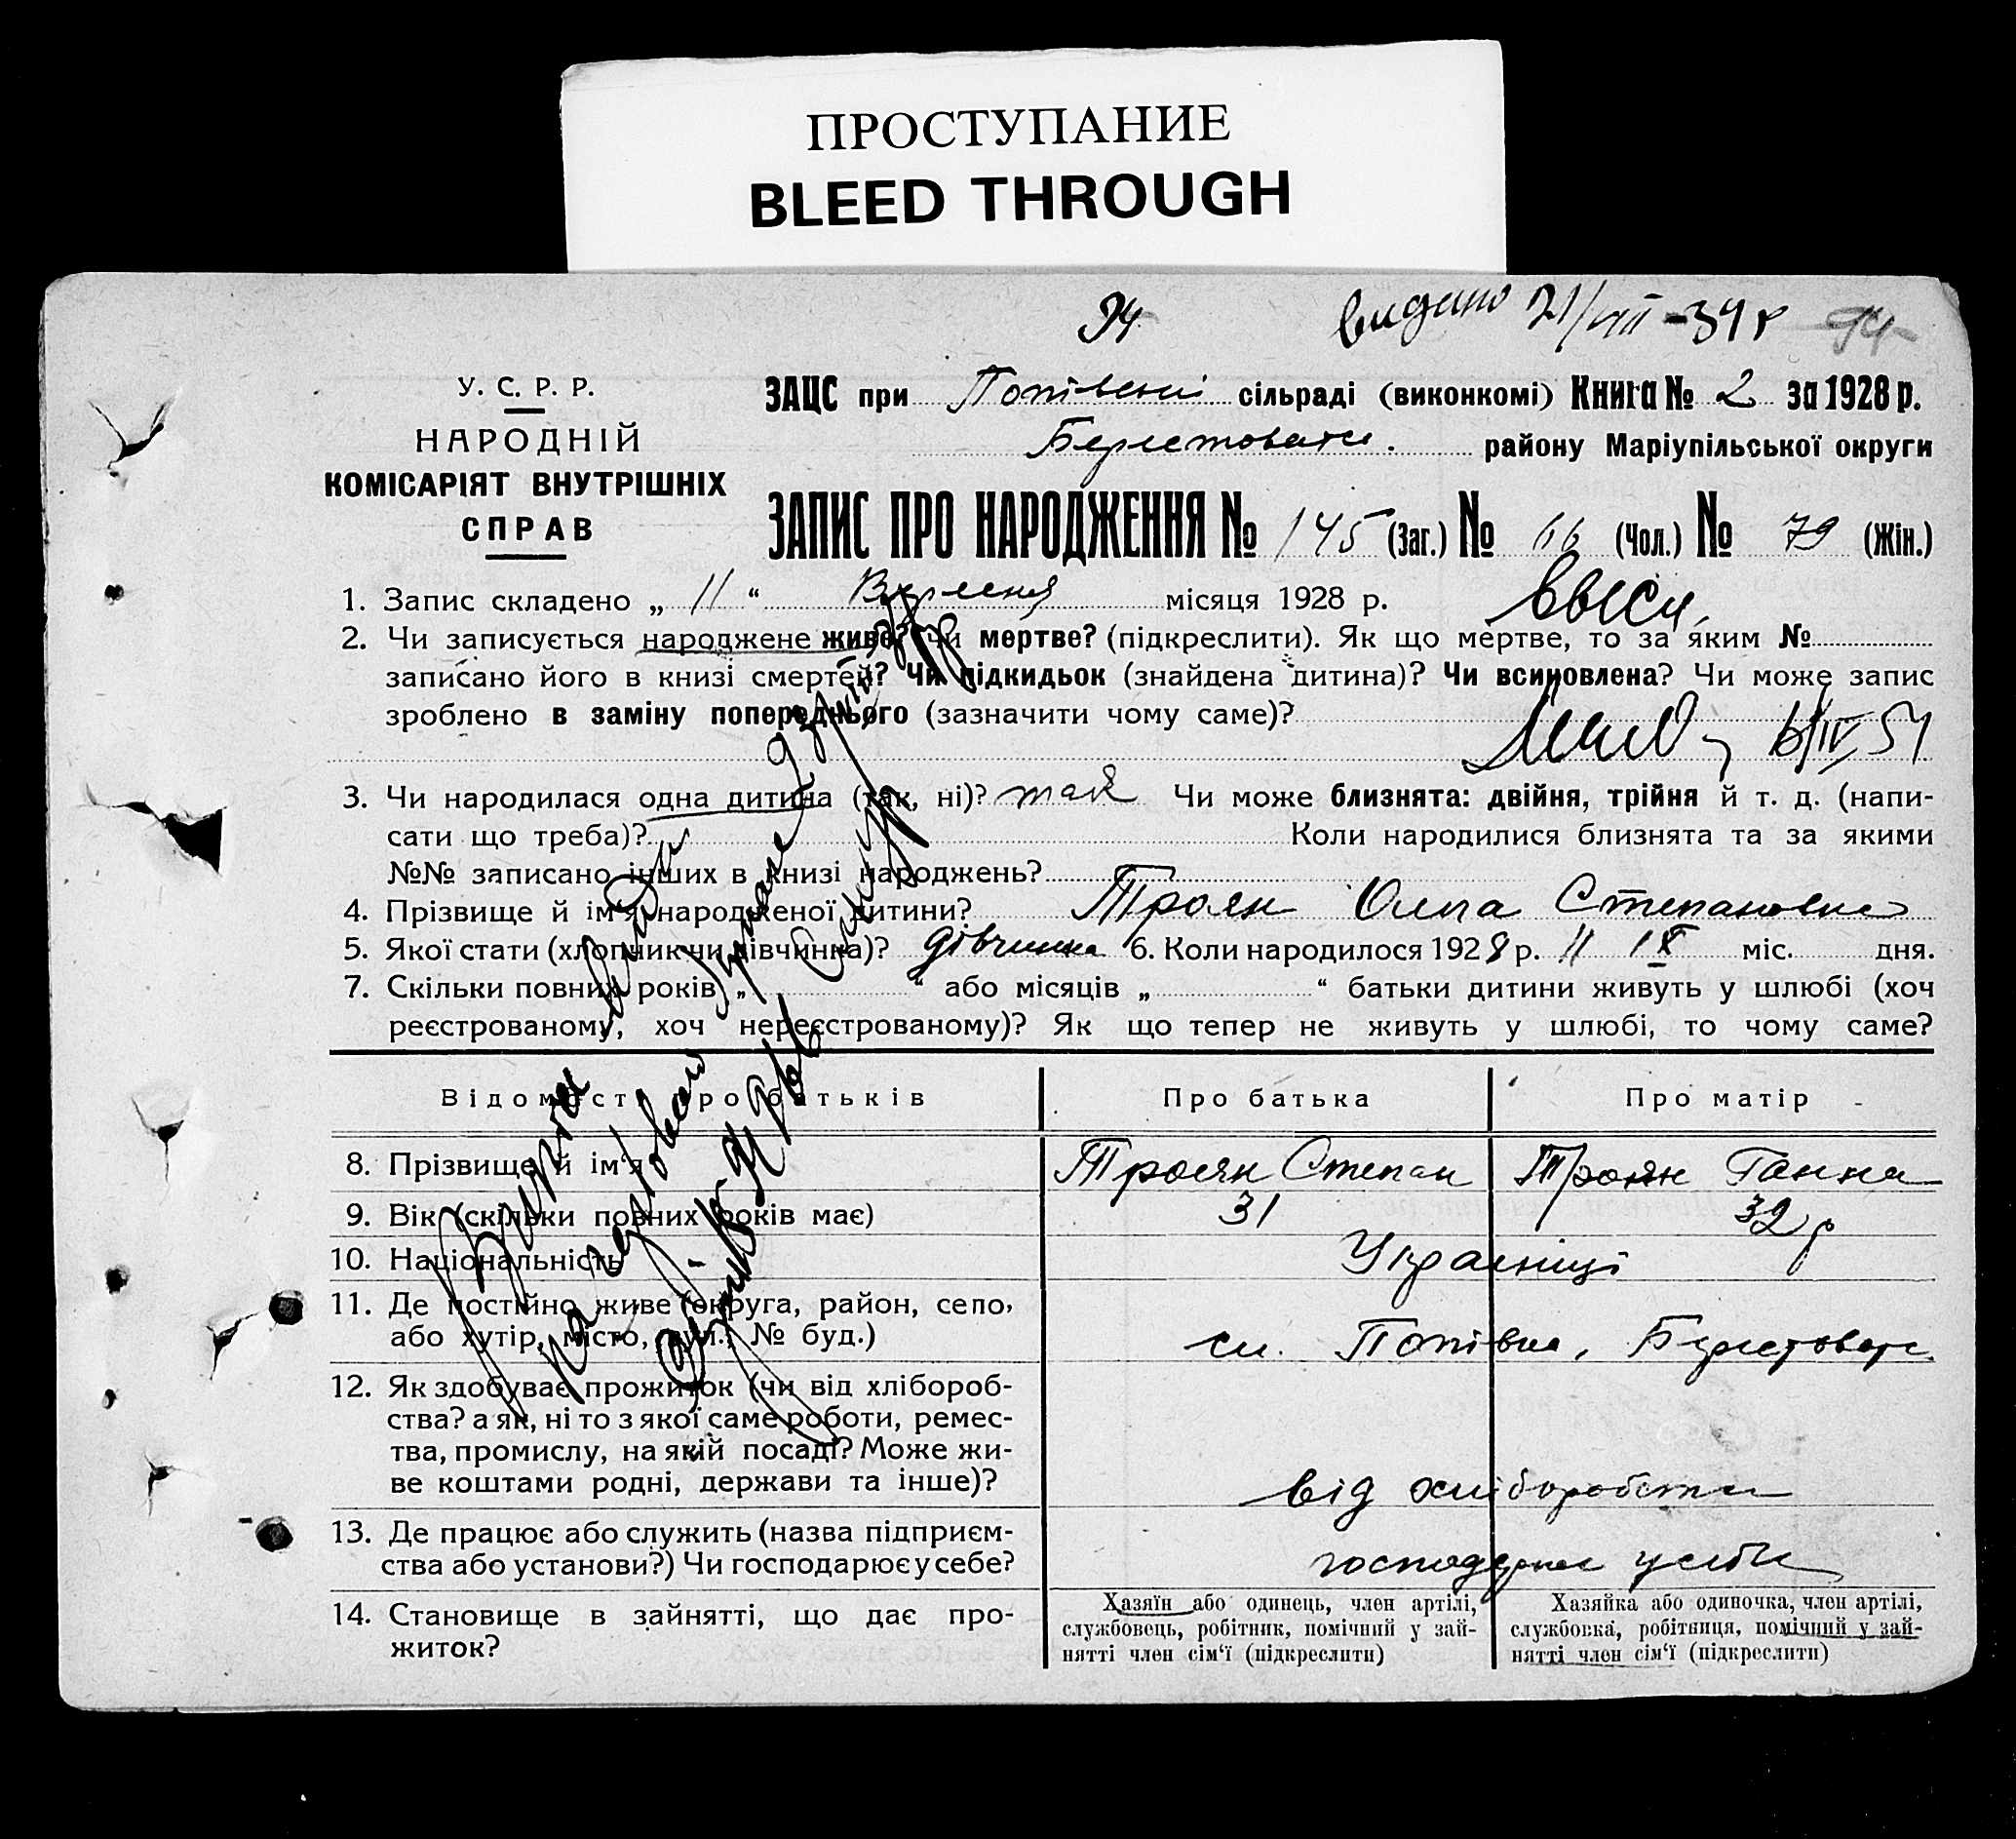 ПРОСТУПАНИЕ
BLEED THROUGH
94
видано 21/VII-34 р
94
У. С. Р. Р.
НАРОДНІЙ
КОМІСАРІЯТ ВНУТРІШНІХ
СПРАВ
ЗАЦС при Попівські сільраді (виконкомі) Книга № 2 за 1928 р.
Берестовате. району Маріупільської округи
ЗАПИС ПРО НАРОДЖЕННЯ № 145 (Заг.) № 66 (Чол.) № 79 (Жін.)
1. Запис складено „ 11 “ Вересня місяця 1928 р.
2. Чи записується народжене живе? чи мертве? (підкреслити). Як що мертве, то за яким №
записано його в книзі смертей? Чи підкидьок (знайдена дитина)? Чи всиновлена? Чи може запис
зроблено в заміну попереднього (зазначити чому саме)?
6/IV 51
3. Чи народилася одна дитина (так, ні)? так Чи може близнята: двійня, трійня й т. д. (напи-
сати що треба)? Коли народилися близнята та за якими
№№ записано інших в книзі народжень?
4. Прізвище й ім'я народженої дитини? Троян Ольга Степановна
5. Якої стати (хлопчик чи дівчинка)? дівчинка 6. Коли народилося 1928 р. 11 IX міс. дня.
7. Скільки повних років „ “ або місяців „ “ батьки дитини живуть у шлюбі (хоч
реєстрованому, хоч нереєстрованому)? Як що тепер не живуть у шлюбі, то чому саме?
Відомості про батьків
Про батька
Про матір
8. Прізвище й ім'я
Троян Степан
Троян Ганна
9. Вік (скільки повних років має)
31
32 р
10. Національність
Українці
11. Де постійно живе (округа, район, село,
або хутір, місто, вул., № буд.)
сл. Попівка, Берестовате
12. Як здобуває прожиток (чи від хлібороб-
ства? а як, ні то з якої саме роботи, ремес-
тва, промислу, на якій посаді? Може жи-
ве коштами родні, держави та інше)?
від хліборобства
13. Де працює або служить (назва підприєм-
ства або установи?) Чи господарює у себе?
господарює у себе
14. Становище в зайнятті, що дає про-
житок?
Хазяїн або одинець, член артілі,
службовець, робітник, помічний у зай-
нятті член сім'ї (підкреслити)
Хазяйка або одиночка, член артілі,
службовка, робітниця, помічний у зай-
нятті член сім'ї (підкреслити)